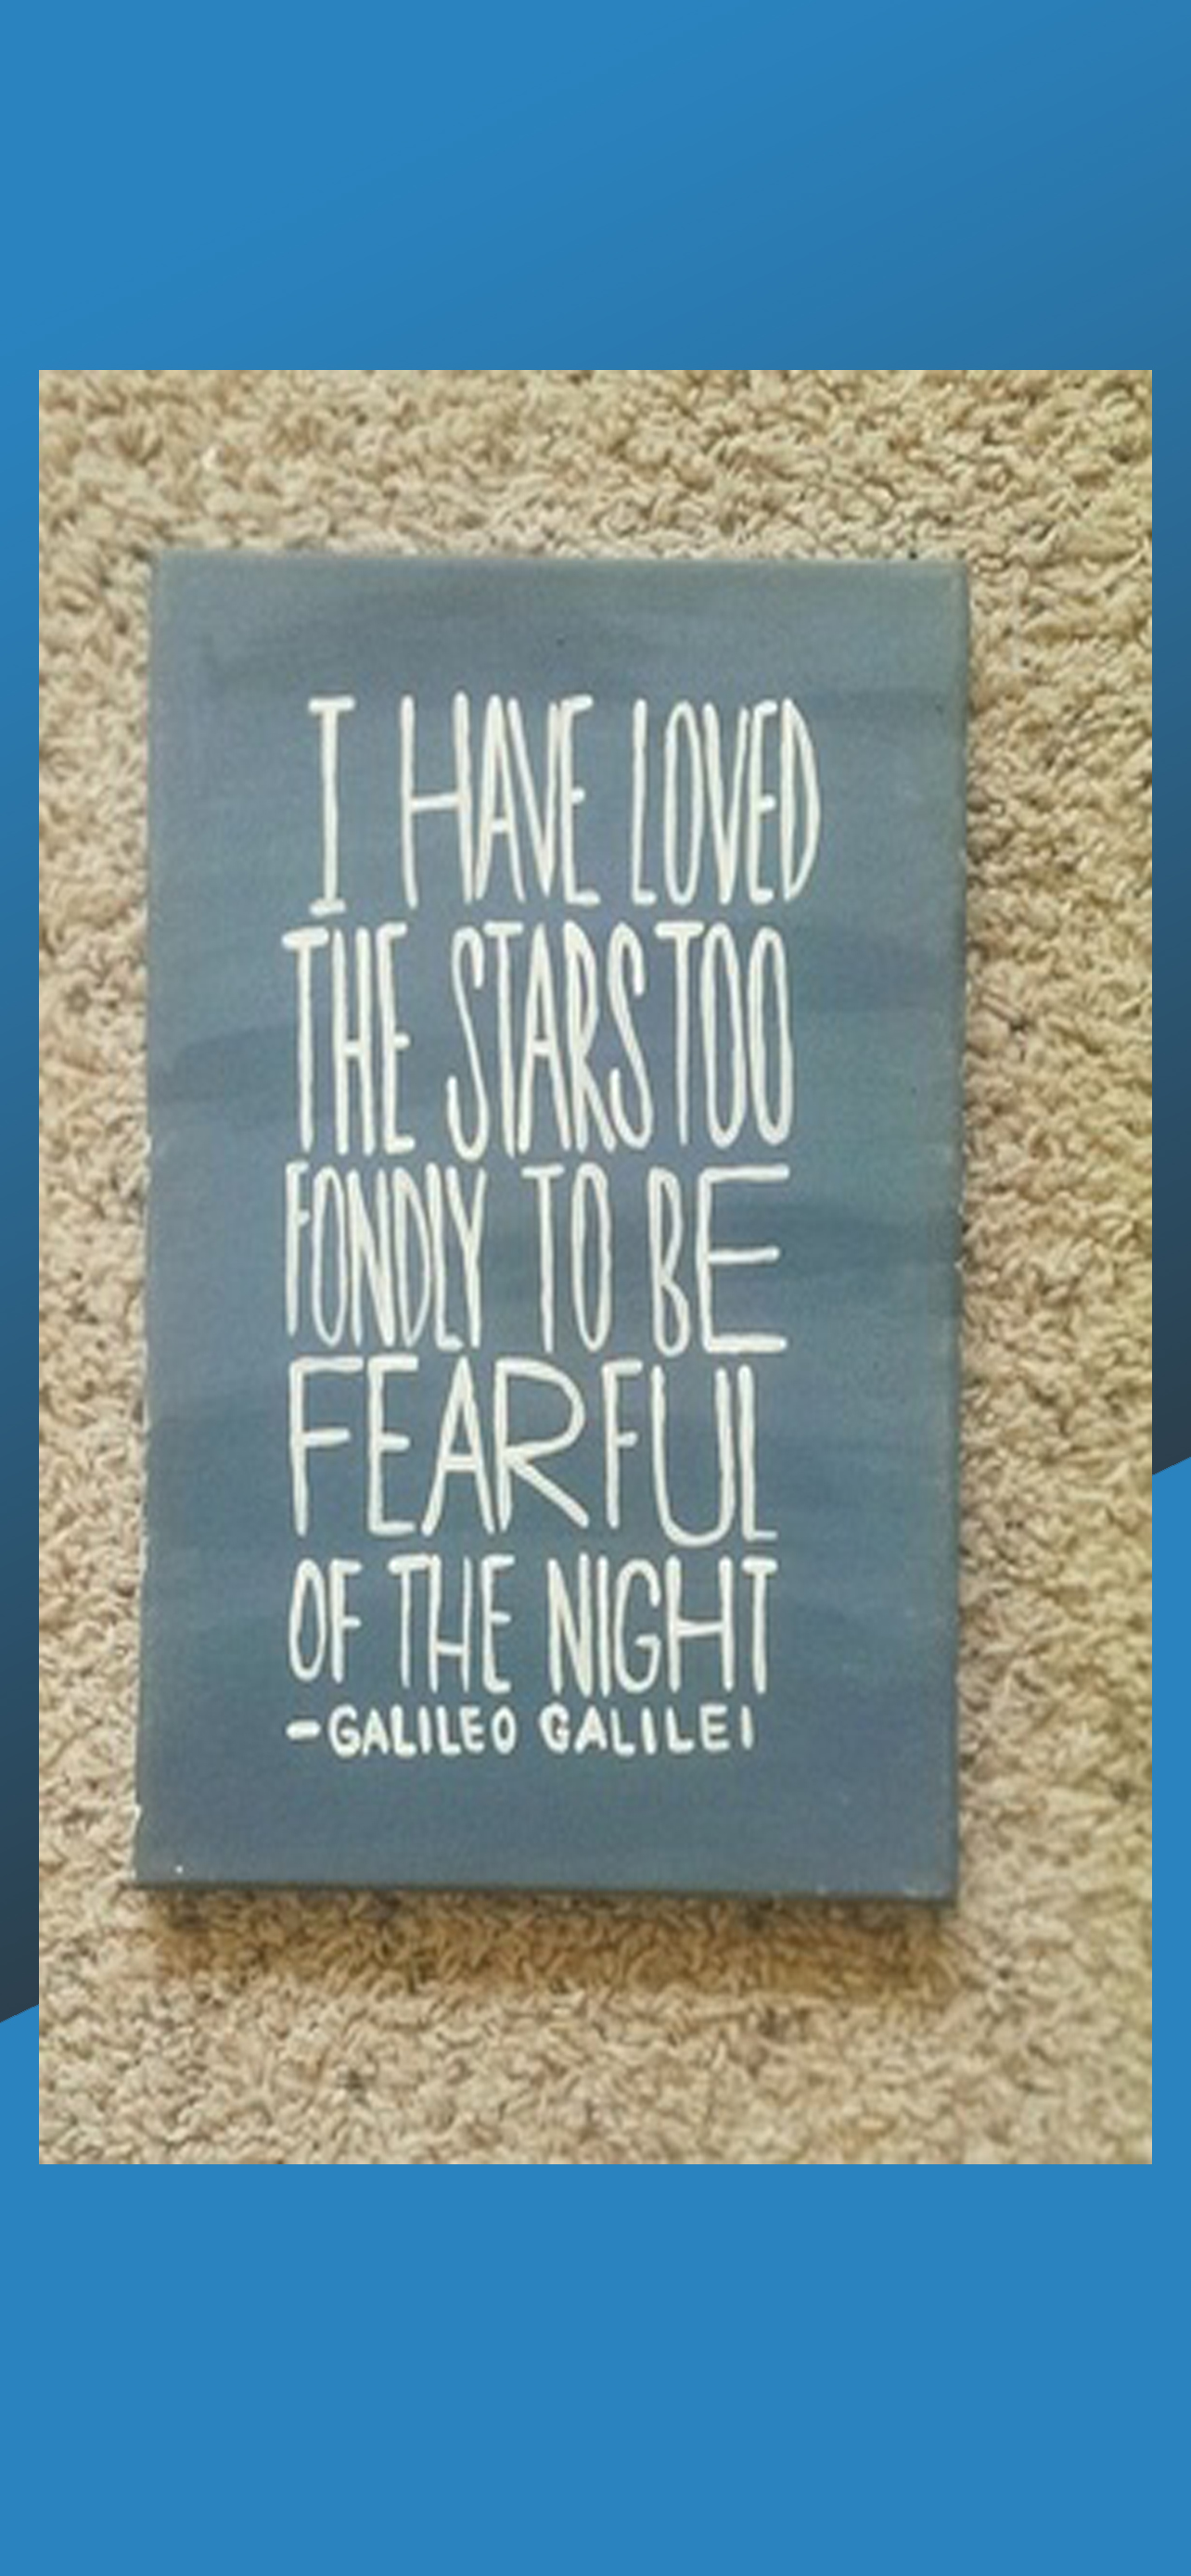 I HAVE LOVED
THE STARS TOO
FONDLY TO BE
FEARFUL
OF THE NIGHT
-GALILEO GALILEI